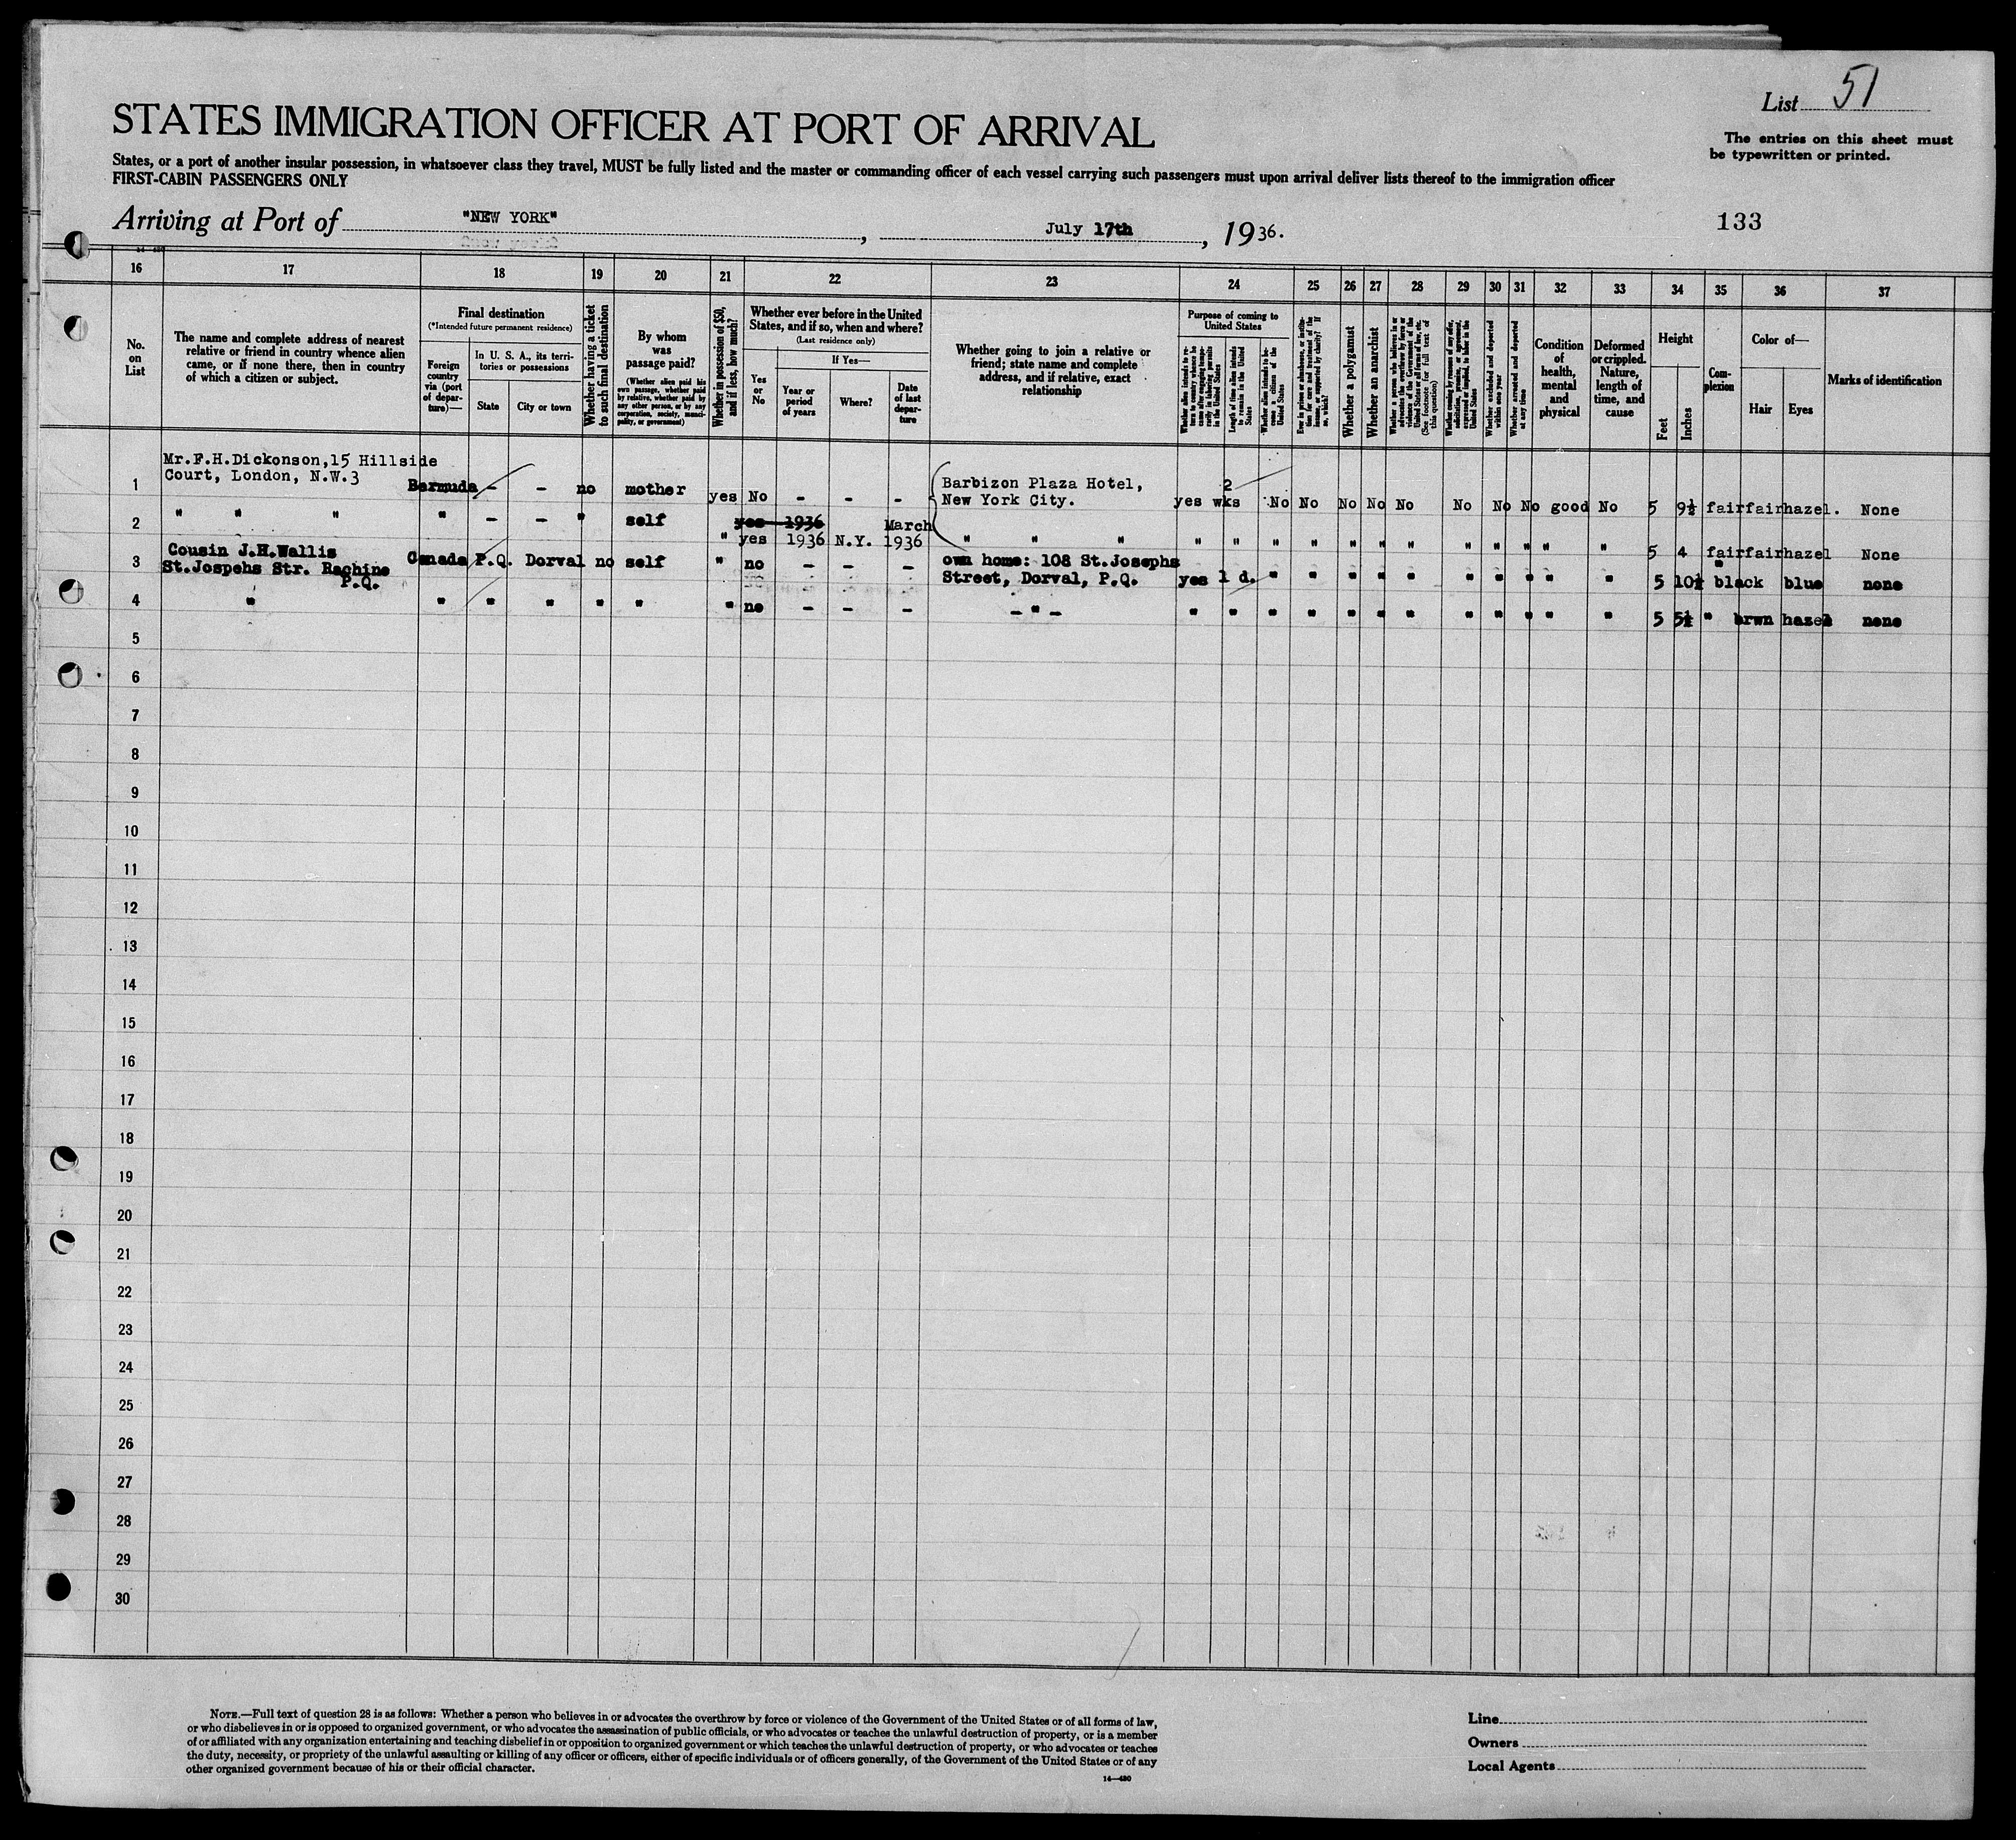 List 51
STATES IMMIGRATION OFFICER AT PORT OF ARRIVAL
The entries on this sheet must
be typewritten or printed.
States, or a port of another insular possession, in whatsoever class they travel, MUST be fully listed and the master or commanding officer of each vessel carrying such passengers must upon arrival deliver lists thereof to the immigration officer
FIRST-CABIN PASSENGERS ONLY
Arriving at Port of "NEW YORK", July 17th, 1936.
133
16 17 18 19 20 21 22 23 24 25 26 27 28 29 30 31 32 33 34 35 36 37
No.
on
List
The name and complete address of nearest
relative or friend in country whence alien
came, or if none there, then in country
of which a citizen or subject.
Final destination
(*Intended future permanent residence)
Foreign
country
via (port
of depar-
ture)—
In U. S. A., its terri-
tories or possessions
State
City or town
Whether having a ticket
to such final destination
By whom
was
passage paid?
(Whether alien paid his
own passage, whether paid
by relative, whether paid by
any other person, or by any
corporation, society, munici-
pality, or government)
Whether in possession of $50,
and if less, how much?
Whether ever before in the United
States, and if so, when and where?
(Last residence only)
Yes
or
No
If Yes—
Year or
period
of years
Where?
Date
of last
depar-
ture
Whether going to join a relative or
friend; state name and complete
address, and if relative, exact
relationship
Purpose of coming to
United States
Whether alien intends to re-
turn to country whence he
came after engaging tempo-
rarily in laboring pursuits
in the United States
Length of time alien intends
to remain in the United
States
Whether alien intends to be-
come a citizen of the
United States
Ever in prison or almshouse, or institu-
tion for care and treatment of the
insane, or supported by charity? If
so, which?
Whether a polygamist
Whether an anarchist
Whether a person who believes in or
advocates the overthrow by force or
violence of the Government of the
United States or all forms of law, etc.
(See footnote for full text of
this question)
Whether coming by reason of any offer,
solicitation, promise, or agreement,
expressed or implied, to labor in the
United States
Whether excluded and deported
within one year
Whether arrested and deported
at any time
Condition
of
health,
mental
and
physical
Deformed
or crippled.
Nature,
length of
time, and
cause
Height
Feet
Inches
Com-
plexion
Color of—
Hair
Eyes
Marks of identification
Mr.F.H.Dickonson,15 Hillside
Court, London, N.W.3
1 Bermuda - - no mother yes No - - - Barbizon Plaza Hotel,
New York City. yes 2 wks No No No No No No No No good No 5 9½ fair fair hazel. None
2 " " " " - - " self yes 1936 March
" yes 1936 N.Y. 1936 " " " " " " " " " " " " " " " 5 4 fair fair hazel None
3 Cousin J.H.Wallis
St.Jospehs Str. Rachine
P.Q.
Canada P.Q. Dorval no self " no - - - own home: 108 St.Josephs
Street, Dorval, P.Q. yes 1 d. " " " " " " " " " " 5 10½ " black blue none
4 " " " " " " " no - - - - " - " " " " " " " " " " " " 5 5½ " brwn hazel none
5
6
7
8
9
10
11
12
13
14
15
16
17
18
19
20
21
22
23
24
25
26
27
28
29
30
NOTE.—Full text of question 28 is as follows: Whether a person who believes in or advocates the overthrow by force or violence of the Government of the United States or of all forms of law,
or who disbelieves in or is opposed to organized government, or who advocates the assassination of public officials, or who advocates or teaches the unlawful destruction of property, or is a member
of or affiliated with any organization entertaining and teaching disbelief in or opposition to organized government or which teaches the unlawful destruction of property, or who advocates or teaches
the duty, necessity, or propriety of the unlawful assaulting or killing of any officer or officers, either of specific individuals or of officers generally, of the Government of the United States or of any
other organized government because of his or their official character.
14—480
Line
Owners
Local Agents